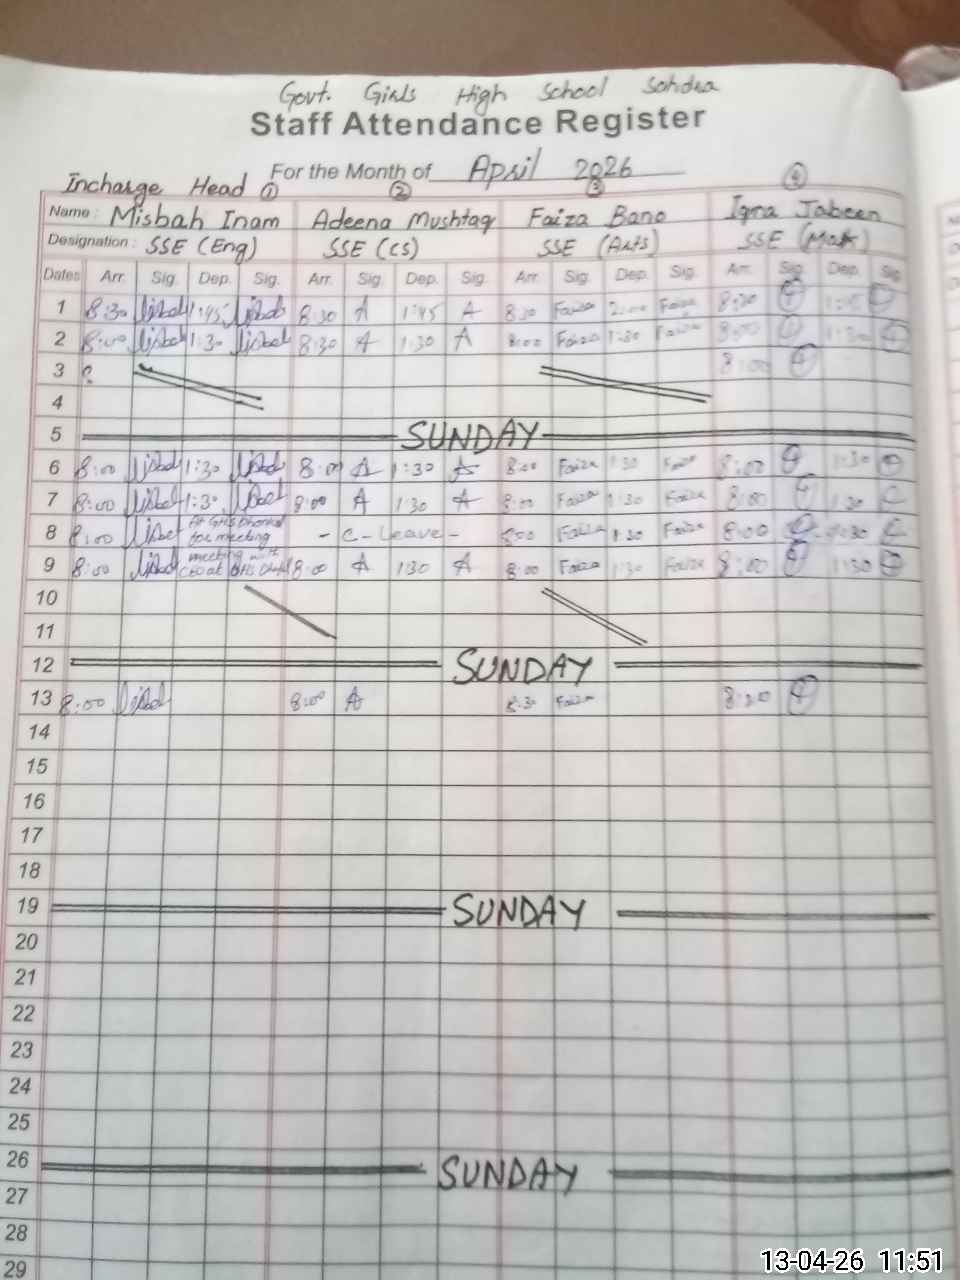 Govt. Girls High School Sohdra
Staff Attendance Register
For the Month of April 2026
Incharge Head ① ② ③ ④
Name : Misbah Inam Adeena Mushtaq Faiza Bano Iqra Jabeen
Designation : SSE (Eng) SSE (CS) SSE (Arts) SSE (Math)
Dates Arr. Sig. Dep. Sig. Arr. Sig. Dep. Sig. Arr. Sig. Dep. Sig. Arr. Sig. Dep. Sig.
1 8:30 1:45 8:30 A 1:45 A 8:30 Faiza Faiza 8:30
2 8:00 1:30 8:30 A 1:30 A 8:00 Faiza 1:30 Faiza 8:00 1:30
3 8:00
4
5 SUNDAY
6 8:00 1:30 8:00 A 1:30 A 8:00 Faiza 1:30 Faiza 8:00 1:30
7 8:00 1:30 8:00 A 1:30 A 8:00 Faiza 1:30 Faiza 8:00 1:30
8 8:00 At GHS for meeting - C-Leave - 8:00 Faiza 1:30 Faiza 8:00 1:30
9 8:00 meeting with CEO at GHS 8:00 A 1:30 A 8:00 Faiza 1:30 Faiza 8:00 1:30
10
11
12 SUNDAY
13 8:00 8:00 A 8:30 Faiza 8:00
14
15
16
17
18
19 SUNDAY
20
21
22
23
24
25
26 SUNDAY
27
28
29
13-04-26 11:51